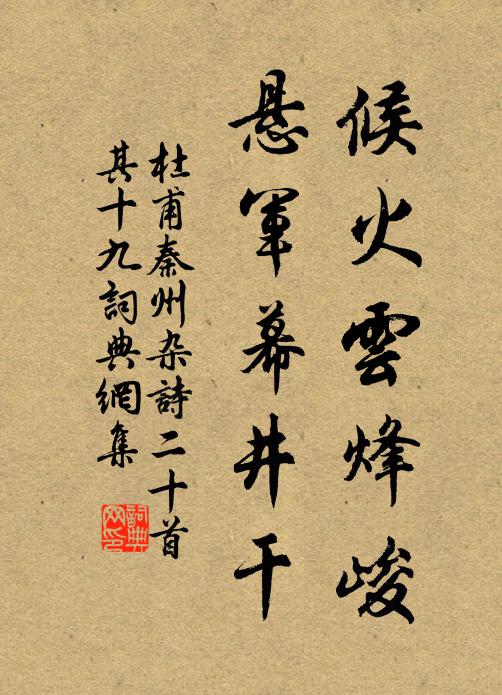 候火雲烽峻
悬軍幕井干
杜甫秦州杂詩二十首
其十九詞典網集
詞典網印